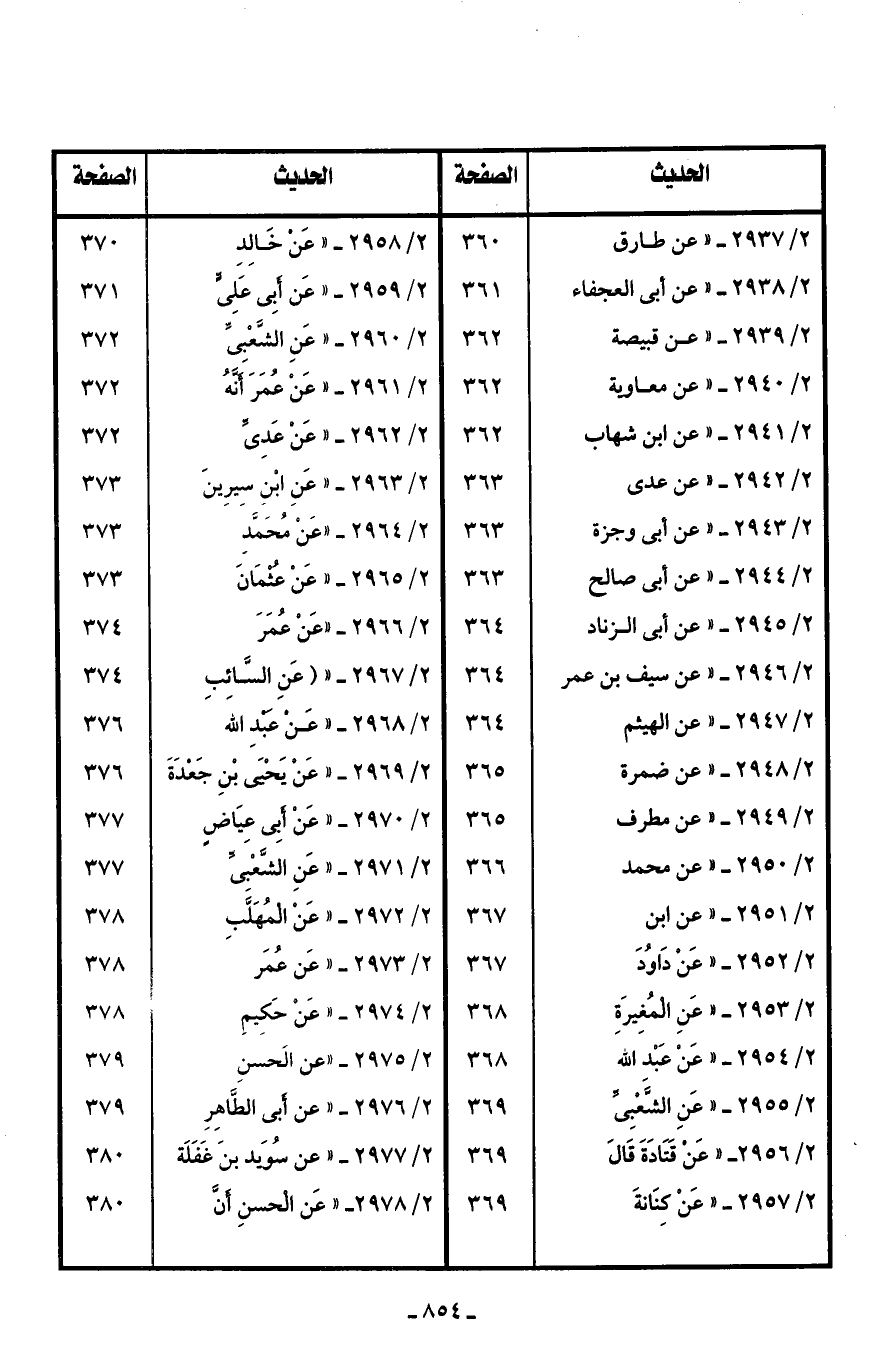 الحديث الصفحة الحديث الصفحة
٢/ ٢٩٣٧ ـ « عن طـارق ٣٦٠ ٢/ ٢٩٥٨ ـ « عَنْ خَـالِدِ ٣٧٠
٢/ ٢٩٣٨ ـ « عن أبى العجفاء ٣٦١ ٢/ ٢٩٥٩ ـ « عَن أَبِى عَلِىٍّ ٣٧١
٢/ ٢٩٣٩ ـ « عـن قبيصة ٣٦٢ ٢/ ٢٩٦٠ ـ « عَنِ الشَّعْبِىِّ ٣٧٢
٢/ ٢٩٤٠ ـ « عن معـاوية ٣٦٢ ٢/ ٢٩٦١ ـ « عَنْ عُمَرَ أَنَّهُ ٣٧٢
٢/ ٢٩٤١ ـ « عن ابن شهاب ٣٦٢ ٢/ ٢٩٦٢ ـ « عَنْ عَدِىٍّ ٣٧٢
٢/ ٢٩٤٢ ـ « عن عدى ٣٦٣ ٢/ ٢٩٦٣ ـ « عَنِ ابْنِ سِيرِينَ ٣٧٣
٢/ ٢٩٤٣ ـ « عن أبى وجزة ٣٦٣ ٢/ ٢٩٦٤ ـ «عَنْ مُحَمَّدِ ٣٧٣
٢/ ٢٩٤٤ ـ « عن أبى صالح ٣٦٣ ٢/ ٢٩٦٥ ـ « عَنْ عُثْمَانَ ٣٧٣
٢/ ٢٩٤٥ ـ « عن أبى الـزناد ٣٦٤ ٢/ ٢٩٦٦ ـ «عَنْ عُمَرَ ٣٧٤
٢/ ٢٩٤٦ ـ « عن سيف بن عمر ٣٦٤ ٢/ ٢٩٦٧ ـ « ( عَنِ السَّـائِبِ ٣٧٤
٢/ ٢٩٤٧ ـ « عن الهيثم ٣٦٤ ٢/ ٢٩٦٨ ـ « عَـنْ عَبْدِ الله ٣٧٦
٢/ ٢٩٤٨ ـ « عن ضمرة ٣٦٥ ٢/ ٢٩٦٩ ـ « عَنْ يَحْيَى بْنِ جَعْدَةَ ٣٧٦
٢/ ٢٩٤٩ ـ « عن مطرف ٣٦٥ ٢/ ٢٩٧٠ ـ « عَنْ أَبِى عِيَاضٍ ٣٧٧
٢/ ٢٩٥٠ ـ « عن محمد ٣٦٦ ٢/ ٢٩٧١ ـ « عَنِ الشَّعْبِىِّ ٣٧٧
٢/ ٢٩٥١ ـ « عن ابن ٣٦٧ ٢/ ٢٩٧٢ ـ « عَنْ الْمُهَلَّبِ ٣٧٨
٢/ ٢٩٥٢ ـ « عَنْ دَاوُدَ ٣٦٧ ٢/ ٢٩٧٣ ـ « عَن عُمَر ٣٧٨
٢/ ٢٩٥٣ ـ « عَنِ الْمُغِيرَةِ ٣٦٨ ٢/ ٢٩٧٤ ـ « عَنْ حَكِيمِ ٣٧٨
٢/ ٢٩٥٤ ـ « عَنْ عَبْدِ الله ٣٦٨ ٢/ ٢٩٧٥ ـ «عن الَحسنِ ٣٧٩
٢/ ٢٩٥٥ ـ « عَنِ الشَّعْبِىِّ ٣٦٩ ٢/ ٢٩٧٦ ـ « عن أَبى الطَّاهِرِ ٣٧٩
٢/ ٢٩٥٦ـ « عَنْ قَتَادَةَ قَالَ ٣٦٩ ٢/ ٢٩٧٧ ـ « عن سوُيَد بنَ غَفَلَة ٣٨٠
٢/ ٢٩٥٧ ـ « عَنْ كِنَانةَ ٣٦٩ ٢/ ٢٩٧٨ـ « عَن الْحسنِ أَنَّ ٣٨٠
ـ ٨٥٤ ـ